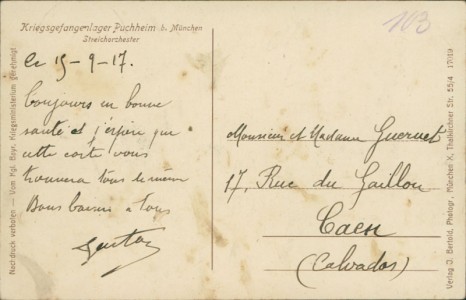 Kriegsgefangenlager Puchheim b. München
Streichorchester
103
Le 15-9-17.
Toujours en bonne
santé et j'espère que
cette carte vous
trouvera tous de même
Bons baisers à tous
Gaston
Monsieur et Madame Guernet
17, Rue du Gaillon
Caen
(Calvados)
Nachdruck verboten — Vom Kgl. Bayr. Kriegsministerium genehmigt.
Verlag J. Bertold, Photogr., München X, Thalkirchner Str. 55/4 17/19